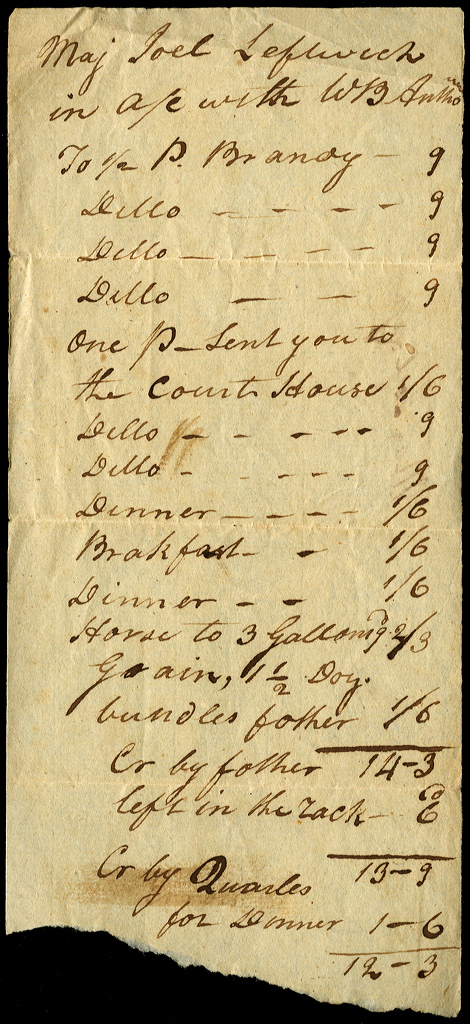 Maj Joel Leftwich
in a/c with WB Antho
To 1/2 P. Brandy – 9
Ditto – – – – 9
Ditto – – – – 9
Ditto – – 9
One P – Sent you to
the Court House 1/6
Ditto – – – – 9
Ditto – – – – 9
Dinner – – – – 1/6
Brakfast – – 1/6
Dinner – – 1/6
Horse to 3 Gallons 9d 2/3
Grain, 1 1/2 Doz.
bundles fother 1/6
Cr by fother 14–3
left in the rack – 6d
13–9
Cr by Quarles
for Dinner 1–6
12–3